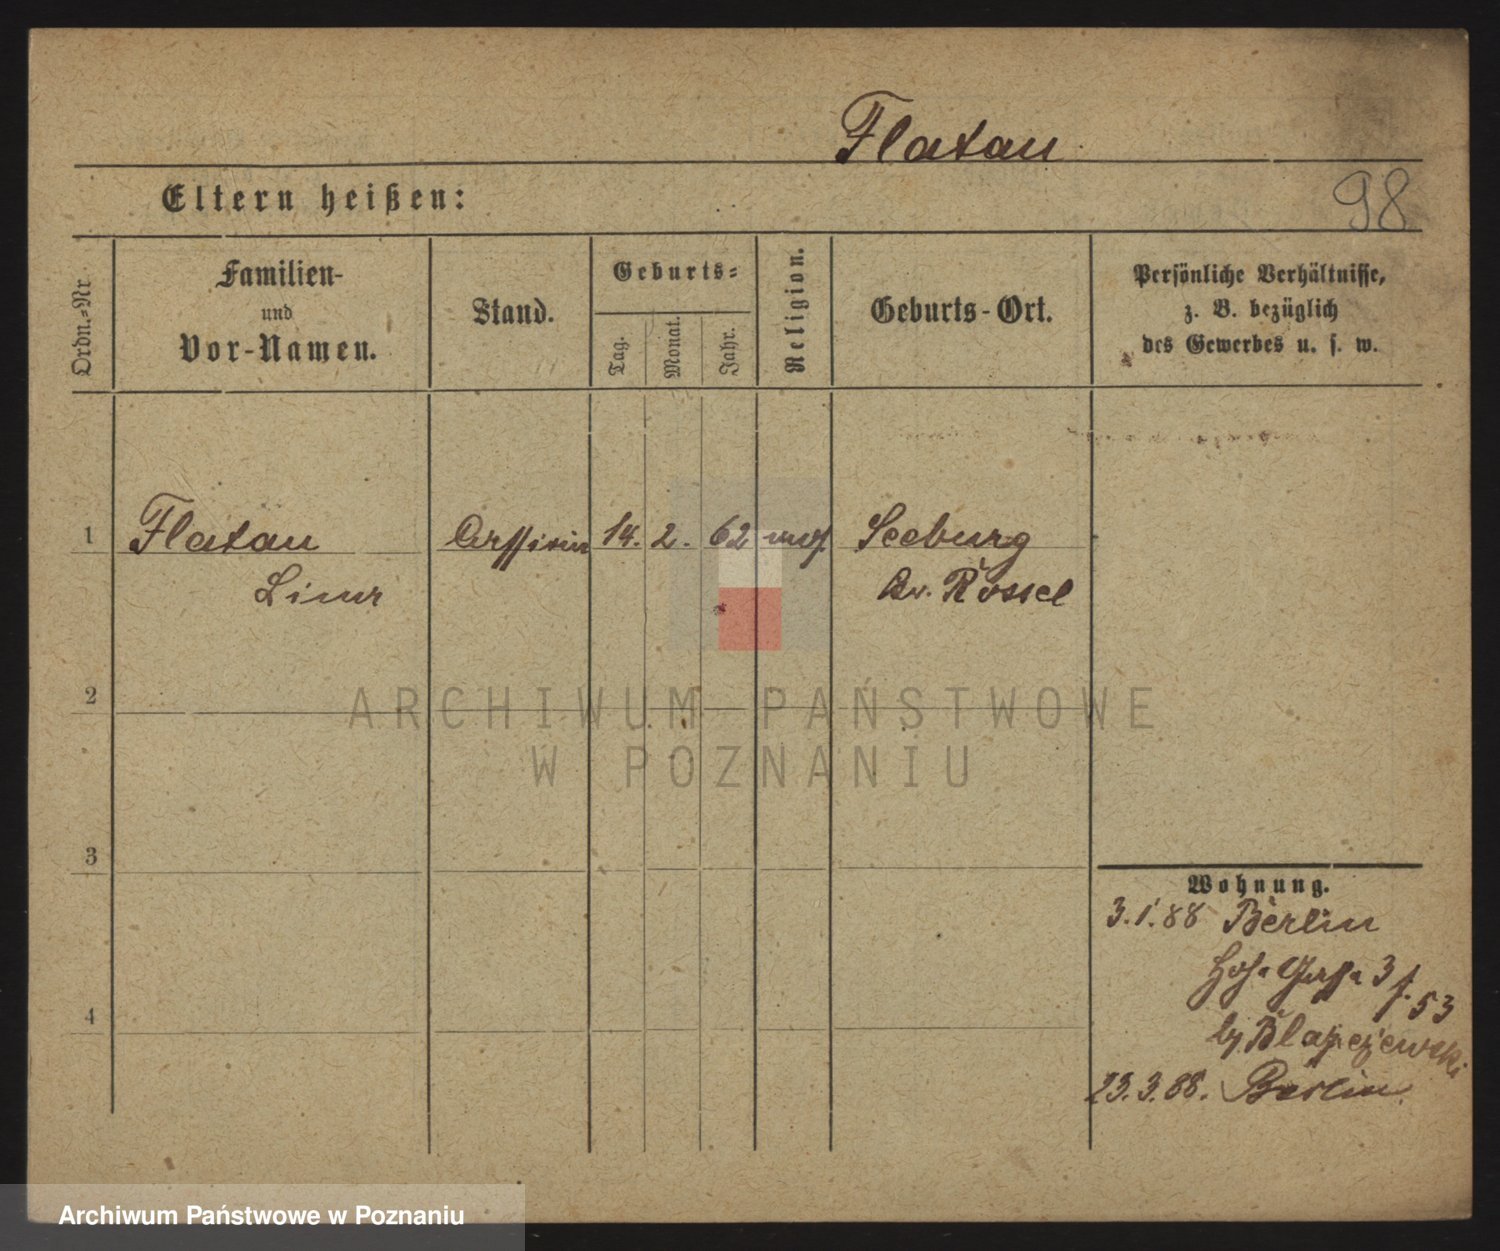 Flatau
98
Eltern heißen:
Ordn.-Nr.
Familien-
und
Vor-Namen.
Stand.
Geburts-
Tag.
Monat.
Jahr.
Religion.
Geburts-Ort.
Persönliche Verhältnisse,
z. B. bezüglich
des Gewerbes u. s. w.
1
Flatau
14. 2. 62
Seeburg
Rössel
2
3
4
Wohnung.
3.1.88 Berlin
3
53
23.3.88. Berlin
ARCHIWUM PAŃSTWOWE
W POZNANIU
Archiwum Państwowe w Poznaniu